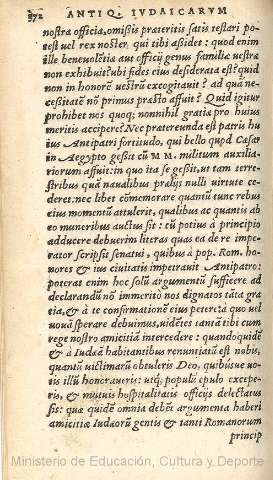 272 ANTIQ. IVDAICARVM
nostra officia, omißis præteritis satis testari po-
test uel rex noster, qui tibi aßidet: quod enim
ille beneuolētiæ aut officij genus familiæ uestræ
non exhibuit? ubi fides eius desiderata est? quid
non in honorē uestrū excogitauit? ad quā ne-
ceßitatē nō primus præsto affuit? Quid igitur
prohibet nos quoq; nonnihil gratiæ pro huius
meritis accipere? Nec prætereunda est patris hu
ius Antipatri fortitudo, qui bello quod Cæsar
in Aegypto geßit cū M M. militum auxilia-
riorum affuit: in quo ita se geßit, ut tam terre-
stribus quā naualibus prælijs nulli uirtute ce-
deret: nec libet cōmemorare quantū tunc rebus
eius momentū attulerit, qualibus ac quantis ab
eo muneribus auctus sit: cū potius à principio
adducere debuerim literas quas ea de re impe-
rator scripsit senatui, quibus à pop. Rom. ho-
nores & ius ciuitatis impetrauit Antipatro:
poterat enim hoc solū argumentū sufficere ad
declarandū nō immeritò nos dignatos tāta gra
tia, & à te confirmationē eius petere: à quo uel
noua sperare debuimus, uidētes tantā tibi cum
rege nostro amicitiā intercedere: quandoquidē
& à Iudæā habitantibus renuntiatū est nobis,
quantū uictimarū obtuleris Deo, quibusue uo-
tis illū honoraueris: utq; populū epulo excepe-
ris, & mutuis hospitalitatis officijs delectatus
sis: quæ quidē omnia debēt argumenta haberi
amicitiæ Iudæorū gentis & tanti Romanorum
princip
Ministerio de Educación, Cultura y Deporte